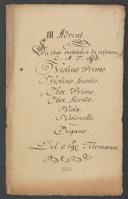 III Advent.
C. A. T. B.
Violino Primo.
Violino Secondo.
Oboe Primo.
Oboe Secondo.
Viola.
Violoncello.
Organo.
Del Sigr Telemann